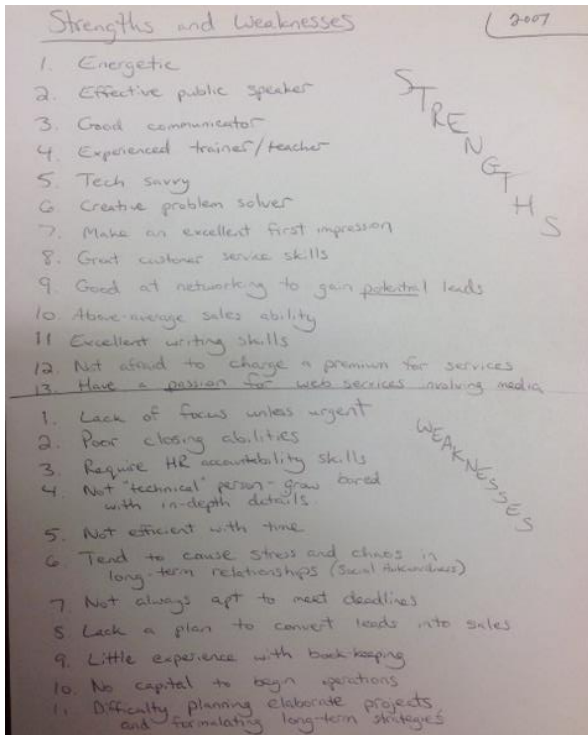 Strengths and Weaknesses
2007
1. Energetic
2. Effective public speaker
3. Good communicator
4. Experienced trainer/teacher
5. Tech savvy
6. Creative problem solver
7. Make an excellent first impression
8. Great customer service skills
9. Good at networking to gain potential leads
10. Above-average sales ability
11 Excellent writing skills
12. Not afraid to charge a premium for services
13. Have a passion for web services involving media
STRENGTHS
1. Lack of focus unless urgent
2. Poor closing abilities
3. Require HR accountability skills
4. Not "technical" person - grow bored
with in-depth details
5. Not efficient with time
6. Tend to cause stress and chaos in
long-term relationships (Social Awkwardness)
7. Not always apt to meet deadlines
8. Lack a plan to convert leads into sales
9. Little experience with book-keeping
10. No capital to begin operations
11. Difficulty planning elaborate projects
and formulating long-term strategies
WEAKNESSES